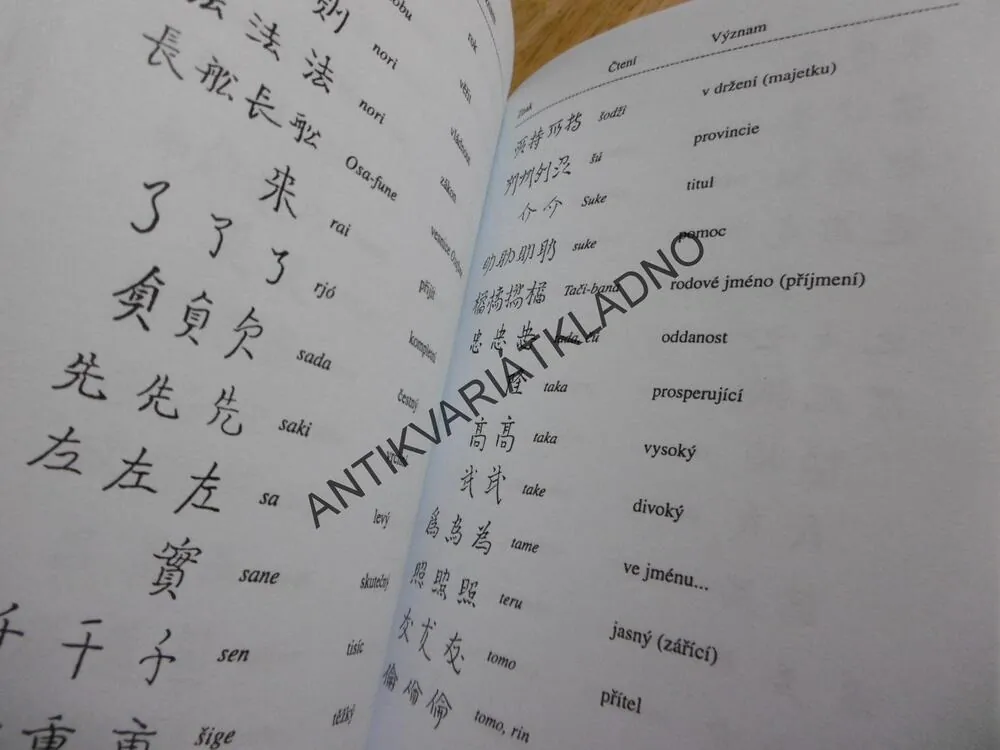 nobu rok
則 nori věřit
法 法 法 nori vládnout
長舩長舩 Osa-fune zákon
来 rai
了 了 了 rjó přijít
貞 貞 sada kompletní
先 先 先 saki čestný
左 左 左 sa levý
實 sane skutečný
千 千 千 sen tisíc
重 重 šige těžký
Znak Čtení Význam
所持 所持 šodži v držení (majetku)
州州 šú provincie
介 介 Suke titul
助助助 suke pomoc
橘橘橘橘 Tači-bana rodové jméno (příjmení)
忠 忠 忠 tada, čú oddanost
taka prosperující
高 高 taka vysoký
武 武 take divoký
爲 為 為 tame ve jménu...
照 照 照 teru jasný (zářící)
友 友 友 tomo přítel
倫 倫 倫 tomo, rin
ANTIKVARIÁTKLADNO